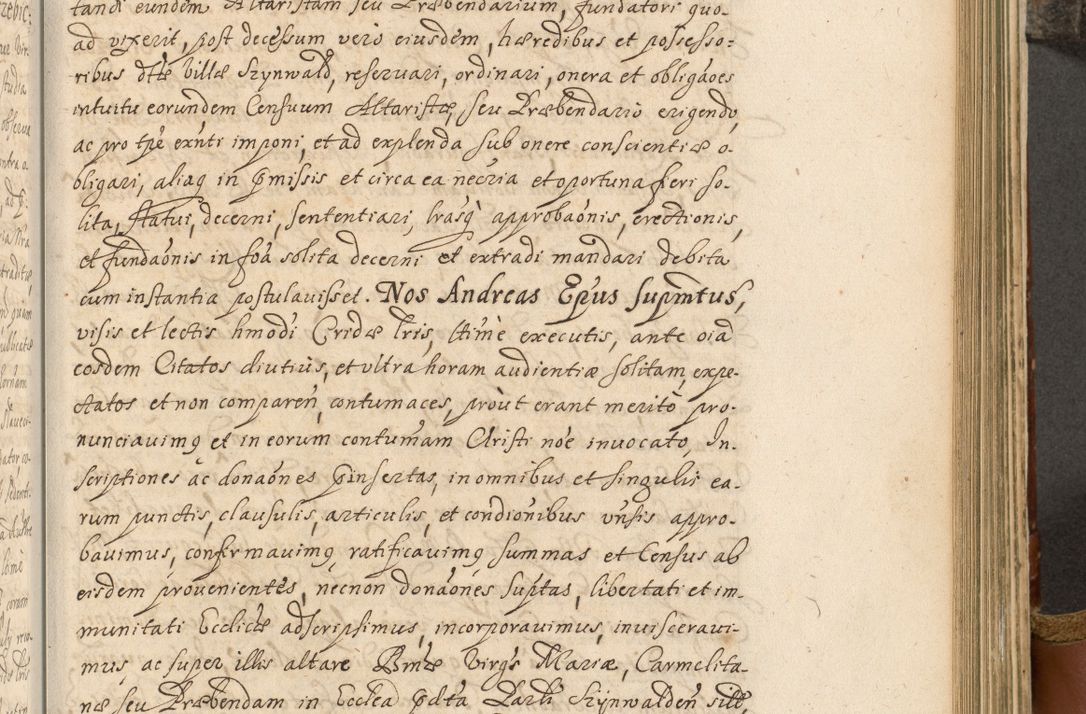 tandi eundem Altaristam seu Præbendarium, fundatori quo-
ad vixerit, post decessum vero eiusdem, hæredibus et possesso-
ribus dtæ villæ Szynwałd, reservari, ordinari, onera et obligãoes
intuitu eorundem Censuum Altaristæ, seu Præbendario erigendo,
ac pro tpe exñti imponi, et ad explenda sub onere conscientiæ o-
bligari, aliaq in pmissis et circa ea necria et oportuna fieri so-
lita, statui, decerni, sententiari, lrasq approbaõnis, erectionis,
et fundaõnis in foã solita decerni et extradi mandari debita
cum instantia postulavisset. Nos Andreas Epus supmtus,
visis et lectis hmodi Cridæ lris, ltime executis, ante oiã
eosdem Citatos diutius, et ultra horam audientiæ solitam, expe-
ctatos et non comparen, contumaces, prout erant merito pro-
nunciavimq et in eorum contumam Christi noe invocato, In-
scriptiones ac donaõnes pinsertas, in omnibus et singulis ea-
rum punctis, clausulis, articulis, et condionibus unsis appro-
bavimus, confirmavimq ratificavimq summas et Census ab
eisdem provenientes, necnon donaõnes suptas, libertati et im-
munitati Ecclicæ adscripsimus, incorporavimus, invisceravi-
mus, ac super illis altare Bmæ Virgs Mariæ, Carmelita-
næ seu Præbendam in Ecclea pdta Parli Szynwalden sitt,